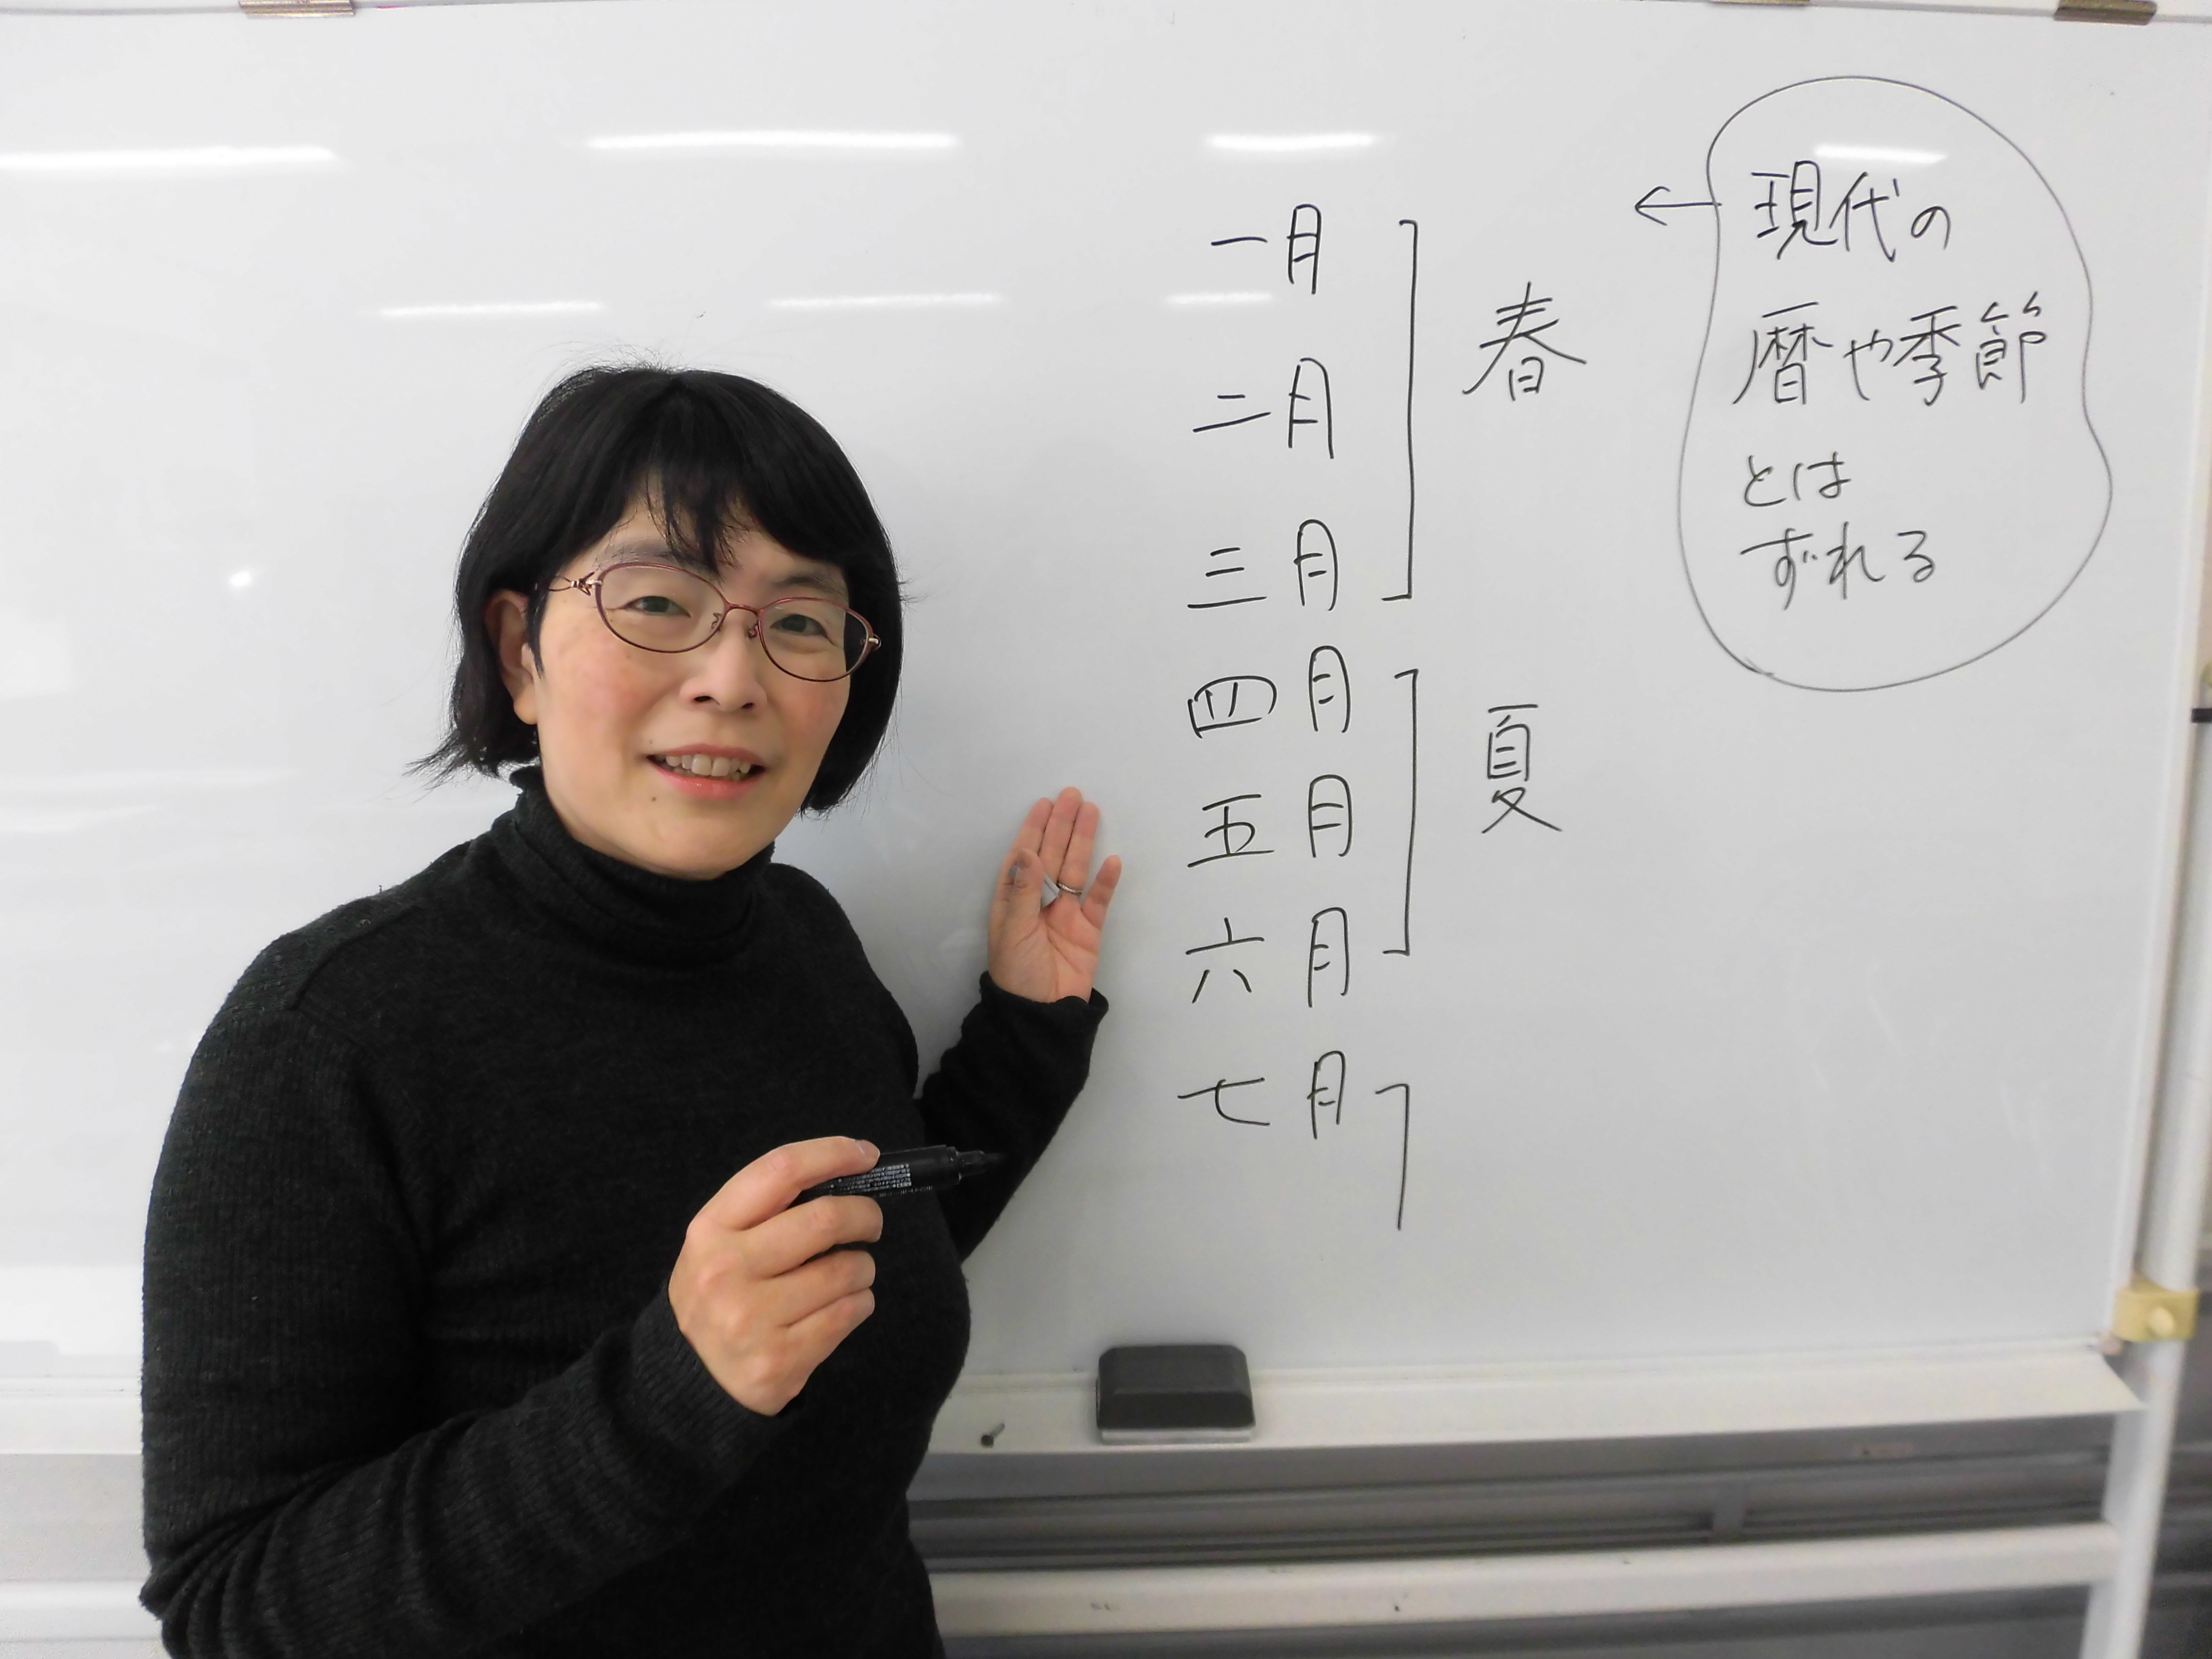 一月
二月
三月
四月
五月
六月
七月
春
夏
←
現代の
暦や季節
とは
ずれる